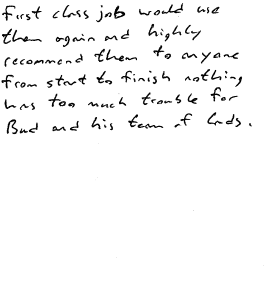 First class job would use
them again and highly
recommend them to anyone
from start to finish nothing
was too much trouble for
Bud and his team of lads.